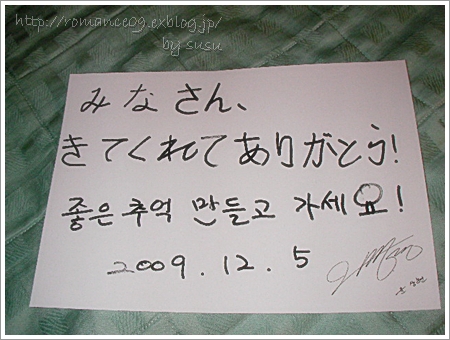 http://romance09.exblog.jp/
by susu
みなさん、
きてくれてありがとう!
좋은 추억 만들고 가세요!
2009.12.5